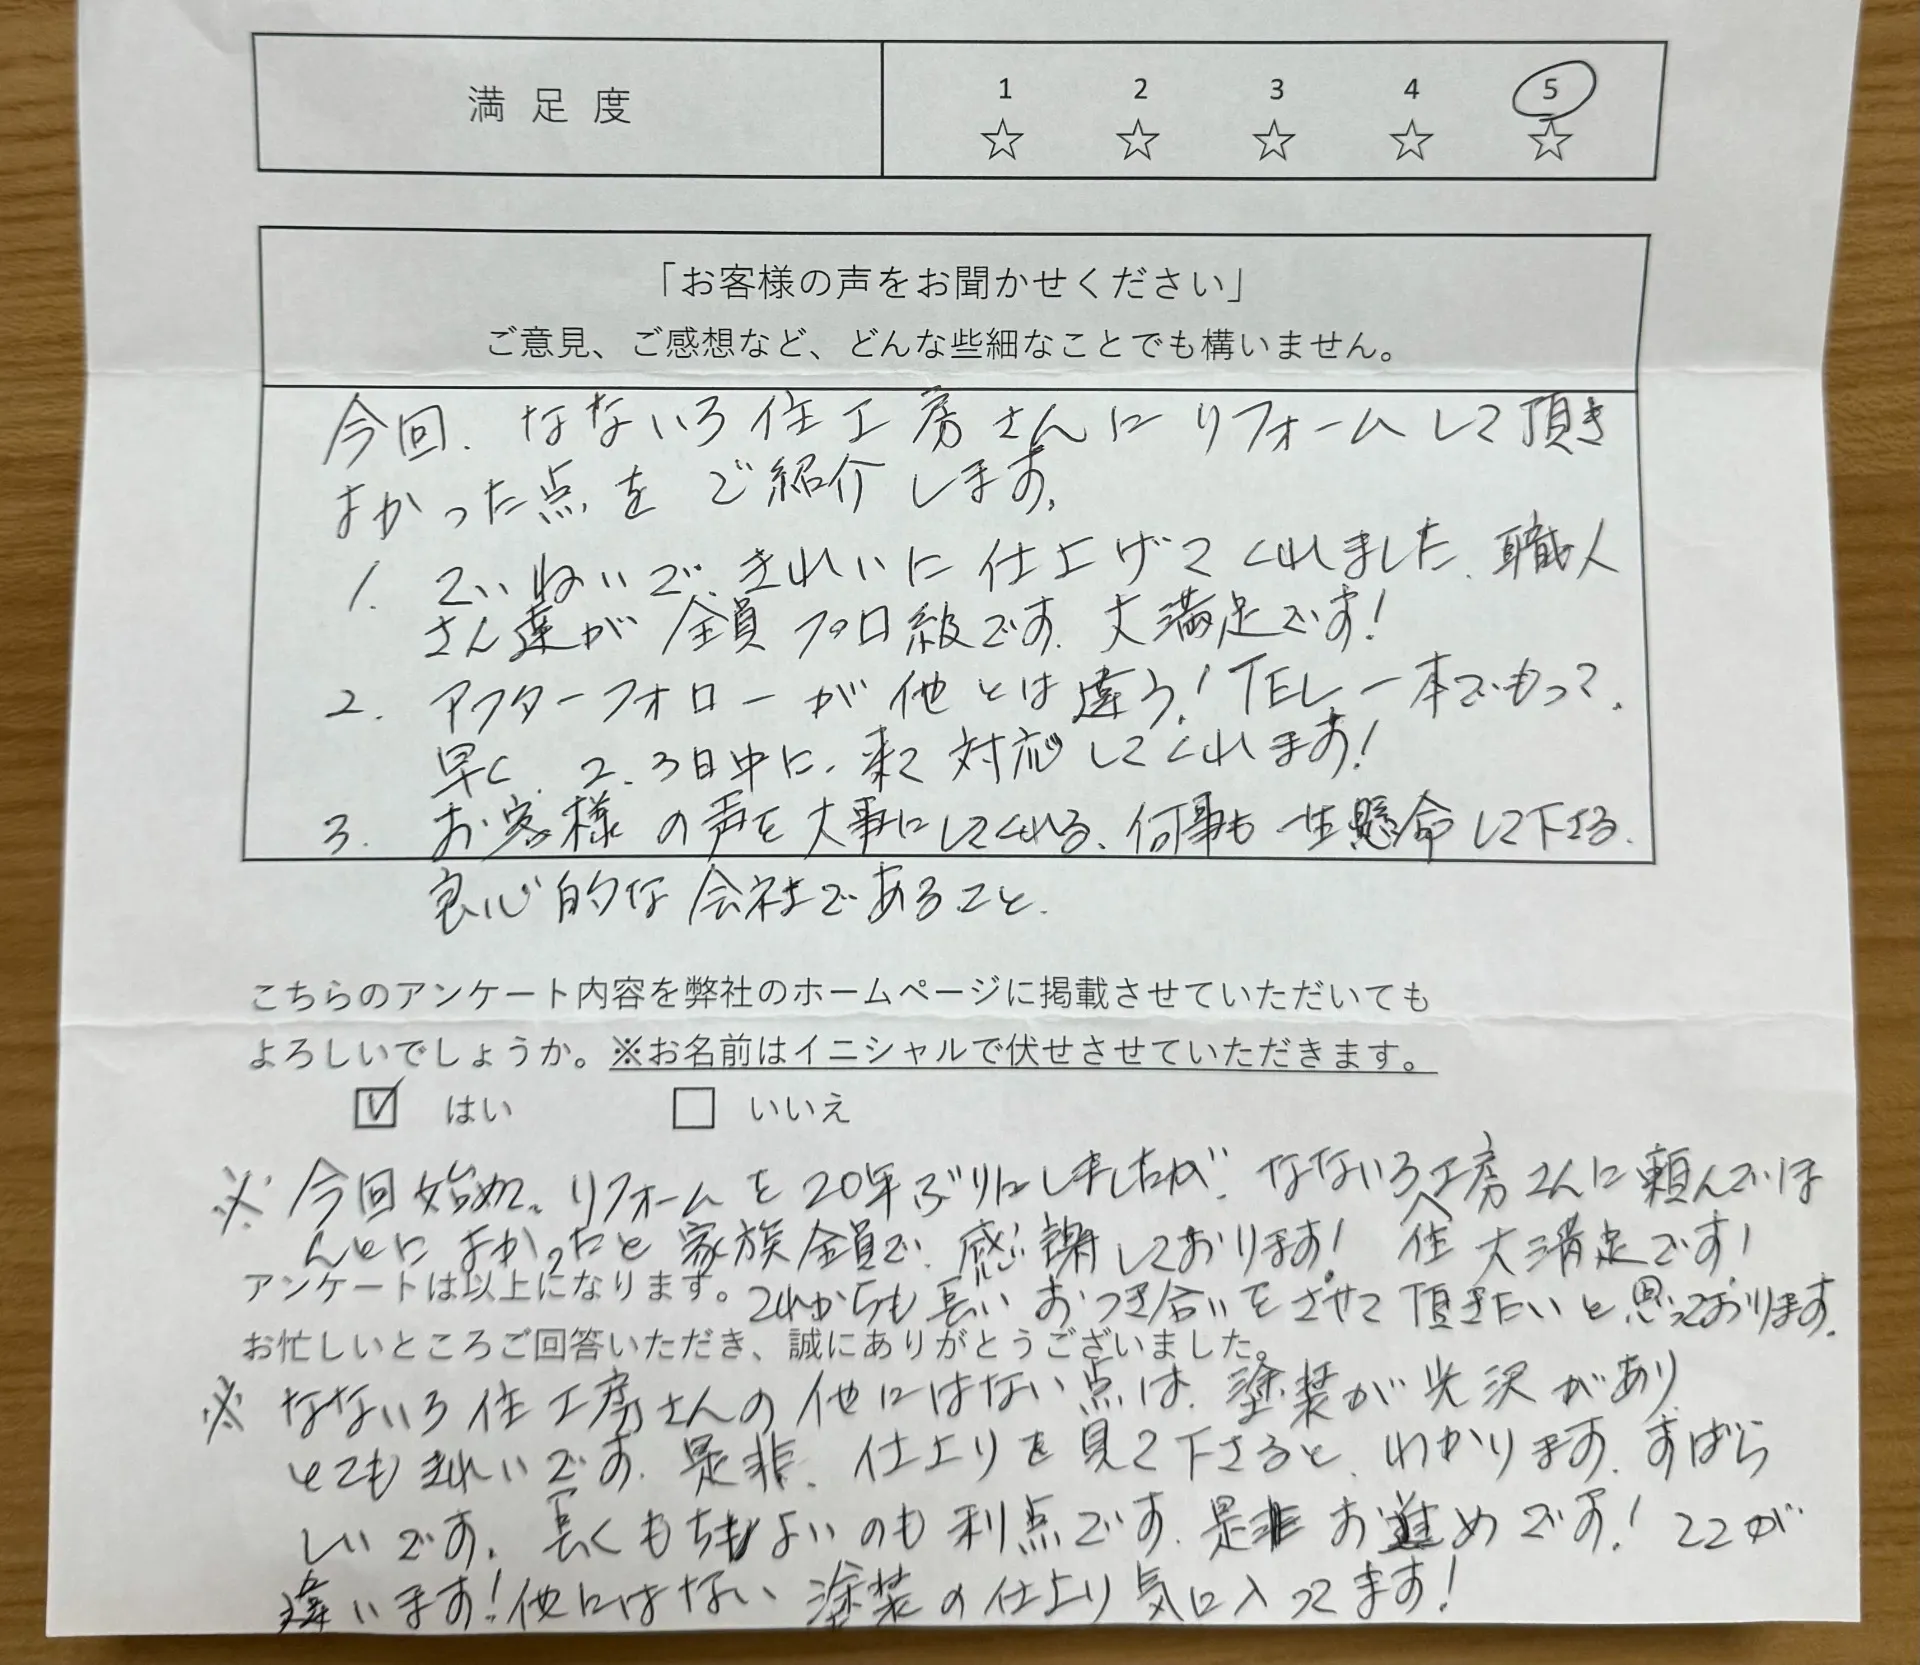 満足度
1 2 3 4 5
☆ ☆ ☆ ☆ ☆
「お客様の声をお聞かせください」
ご意見、ご感想など、どんな些細なことでも構いません。
今回、なないろ住工房さんにリフォームして頂き
よかった点をご紹介します。
1. ていねいで、きれいに仕上げてくれました。職人
さん達が全員プロ級です。大満足です!
2. アフターフォローが他とは違う!TEL一本でもって、
早く、2、3日中に、来て対応してくれます!
3. お客様の声を大事にしてくれる、何事も一生懸命して下さる、
良心的な会社であること。
こちらのアンケート内容を弊社のホームページに掲載させていただいても
よろしいでしょうか。※お名前はイニシャルで伏せさせていただきます。
☑ はい □ いいえ
※ 今回始めて、リフォームを20年ぶりにしましたが、なないろ住工房さんに頼んでほ
んとによかったと家族全員で、感謝しております! 大満足です!
アンケートは以上になります。
これからも長いおつき合いをさせて頂きたいと思っております。
お忙しいところご回答いただき、誠にありがとうございました。
※ なないろ住工房さんの他にはない点は、塗装が光沢があり、
とてもきれいです。是非、仕上りを見て下さると、わかります。すばら
しいです。長くもちもよいのも利点です。是非お進めです!ここが
違います!他にはない塗装の仕上り気に入ってます!